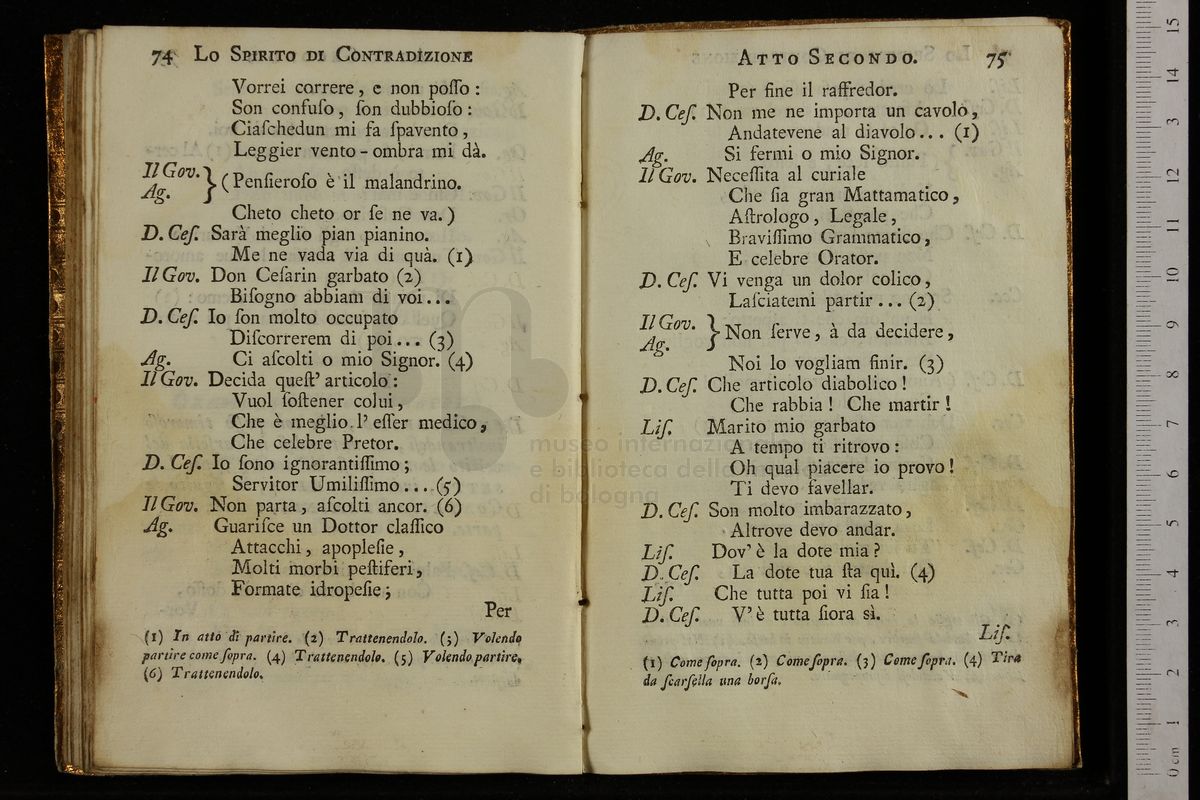 74 Lo Spirito di Contradizione
Vorrei correre, e non poſſo :
Son confuſo, ſon dubbioſo :
Ciaſchedun mi fa ſpavento,
Leggier vento - ombra mi dà.
Il Gov. } ( Penſieroſo è il malandrino.
Ag.
Cheto cheto or ſe ne va. )
D. Ceſ. Sarà meglio pian pianino.
Me ne vada via di quà. (1)
Il Gov. Don Ceſarin garbato (2)
Biſogno abbiam di voi...
D. Ceſ. Io ſon molto occupato
Diſcorrerem di poi... (3)
Ag. Ci aſcolti o mio Signor. (4)
Il Gov. Decida queſt' articolo :
Vuol ſoſtener colui,
Che è meglio l' eſſer medico,
Che celebre Pretor.
D. Ceſ. Io ſono ignorantiſſimo ;
Servitor Umiliſſimo.... (5)
Il Gov. Non parta, aſcolti ancor. (6)
Ag. Guariſce un Dottor claſſico
Attacchi, apopleſie,
Molti morbi peſtiferi,
Formate idropeſie ;
Per
(1) In atto di partire. (2) Trattenendolo. (3) Volendo
partire come ſopra. (4) Trattenendolo. (5) Volendo partire.
(6) Trattenendolo.
Atto Secondo. 75
Per fine il raffredor.
D. Ceſ. Non me ne importa un cavolo,
Andatevene al diavolo... (1)
Ag. Si fermi o mio Signor.
Il Gov. Neceſſita al curiale
Che ſia gran Mattamatico,
Aſtrologo, Legale,
Braviſſimo Grammatico,
E celebre Orator.
D. Ceſ. Vi venga un dolor colico,
Laſciatemi partir... (2)
Il Gov. } Non ſerve, à da decidere,
Ag.
Noi lo vogliam finir. (3)
D. Ceſ. Che articolo diabolico !
Che rabbia ! Che martir !
Liſ. Marito mio garbato
A tempo ti ritrovo :
Oh qual piacere io provo !
Ti devo favellar.
D. Ceſ. Son molto imbarazzato,
Altrove devo andar.
Liſ. Dov' è la dote mia ?
D. Ceſ. La dote tua ſta quì. (4)
Liſ. Che tutta poi vi ſia !
D. Ceſ. V' è tutta ſiora sì.
Liſ.
(1) Come ſopra. (2) Come ſopra. (3) Come ſopra. (4) Tira
da ſcarſella una borſa.
museo internazionale
e biblioteca della musica
di bologna
0 cm 1 2 3 4 5 6 7 8 9 10 11 12 13 14 15